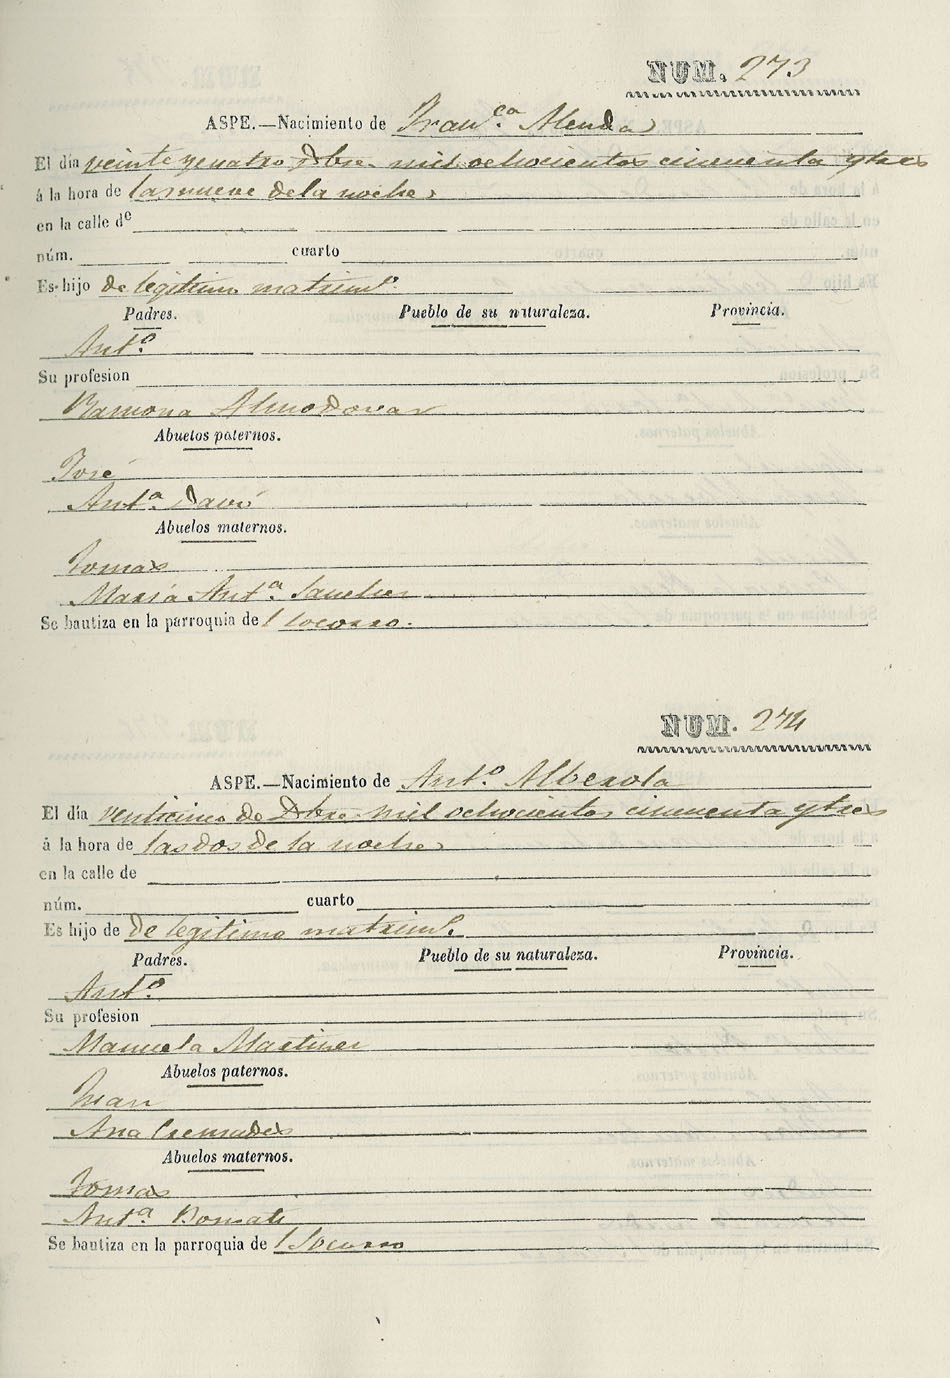 NUM. 273
ASPE.—Nacimiento de Fran.ca Alenda
El día veinte y cuatro Dbre. mil ochocientos cincuenta y tres
á la hora de las nueve de la noche
en la calle de
núm. cuarto
Es hijo de legitimo matrim.o
Padres. Pueblo de su naturaleza. Provincia.
Ant.o
Su profesion
Ramona Almodovar
Abuelos paternos.
José
Ant.a Davó
Abuelos maternos.
Tomas
Maria Ant.a Sanchez
Se bautiza en la parroquia del Socorro.
NUM. 274
ASPE.—Nacimiento de Ant.o Alberola
El día venticinco de Dbre mil ochocientos cincuenta y tres
á la hora de las dos de la noche
en la calle de
núm. cuarto
Es hijo de de legitimo matrim.o
Padres. Pueblo de su naturaleza. Provincia.
Ant.o
Su profesion
Manuela Martinez
Abuelos paternos.
Juan
Ana Cremades
Abuelos maternos.
Tomas
Ant.a
Se bautiza en la parroquia de l Socorro